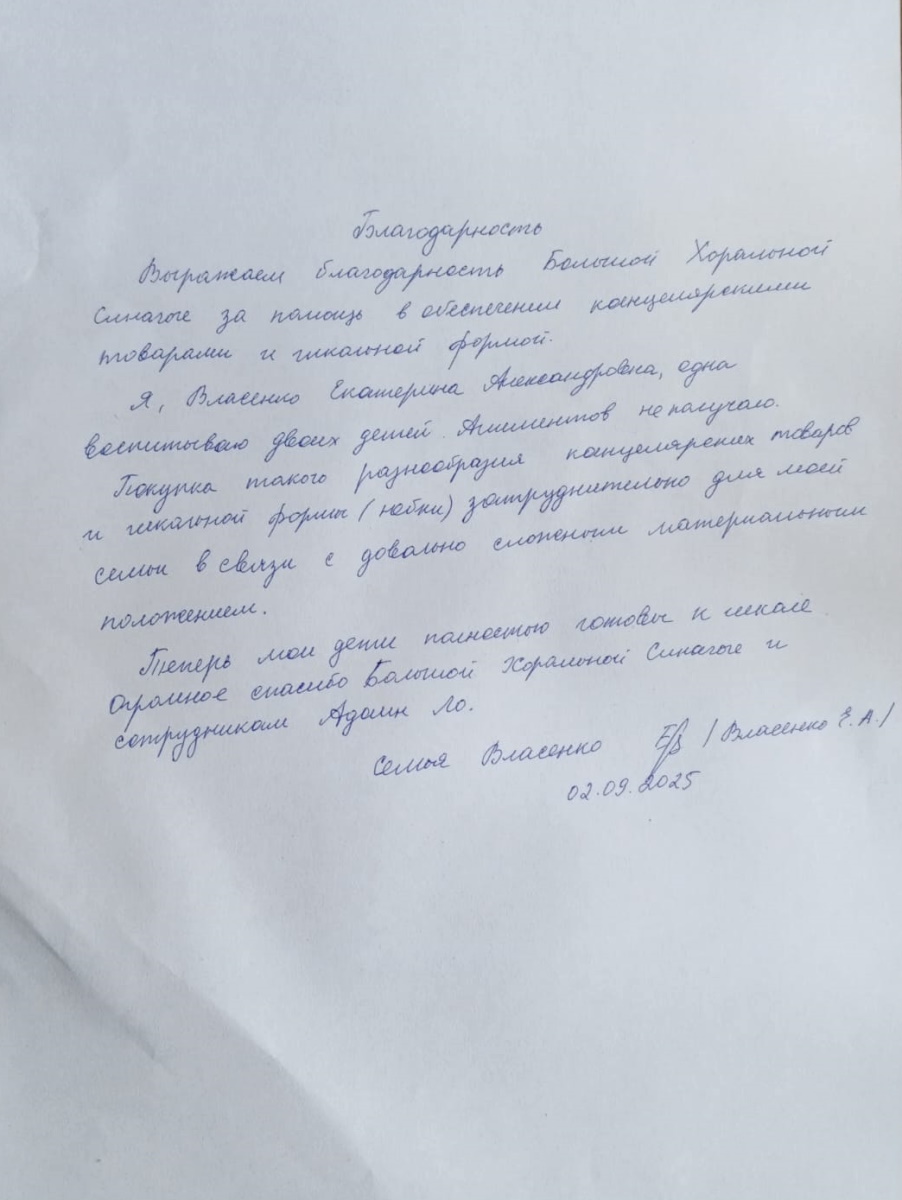 Благодарность
Выражаем благодарность Большой Хоральной
Синагоге за помощь в обеспечении канцелярскими
товарами и школьной формой.
Я, Власенко Екатерина Александровна, одна
воспитываю двоих детей. Алиментов не получаю.
Покупка такого разнообразия канцелярских товаров
и школьной формы (юбки) затруднительно для моей
семьи в связи с довольно сложным материальным
положением.
Теперь мои дети полностью готовы к школе
Огромное спасибо Большой Хоральной Синагоге и
сотрудникам Адаин Ло.
Семья Власенко /Власенко Е.А./
02.09.2025